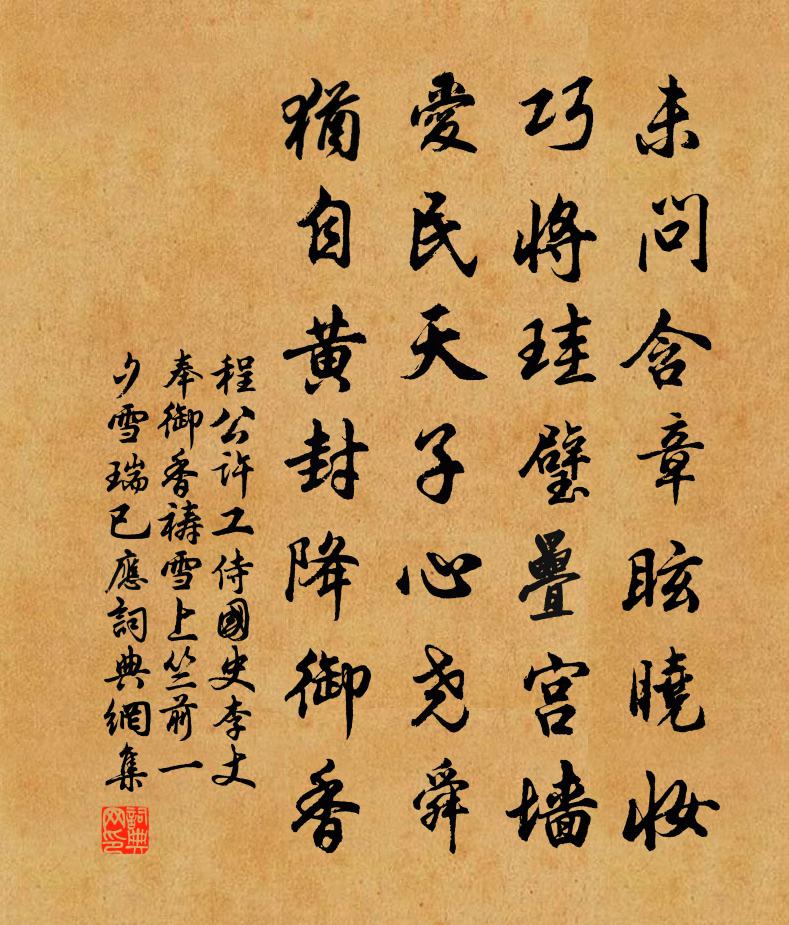 未問含章眩曉妝
巧將珪璧疊宮墙
愛民天子心尧舜
猶自黄封降御香
程公许工侍國史李丈
奉御香禱雪上竺前一
夕雪瑞已應詞典網集
詞典网印